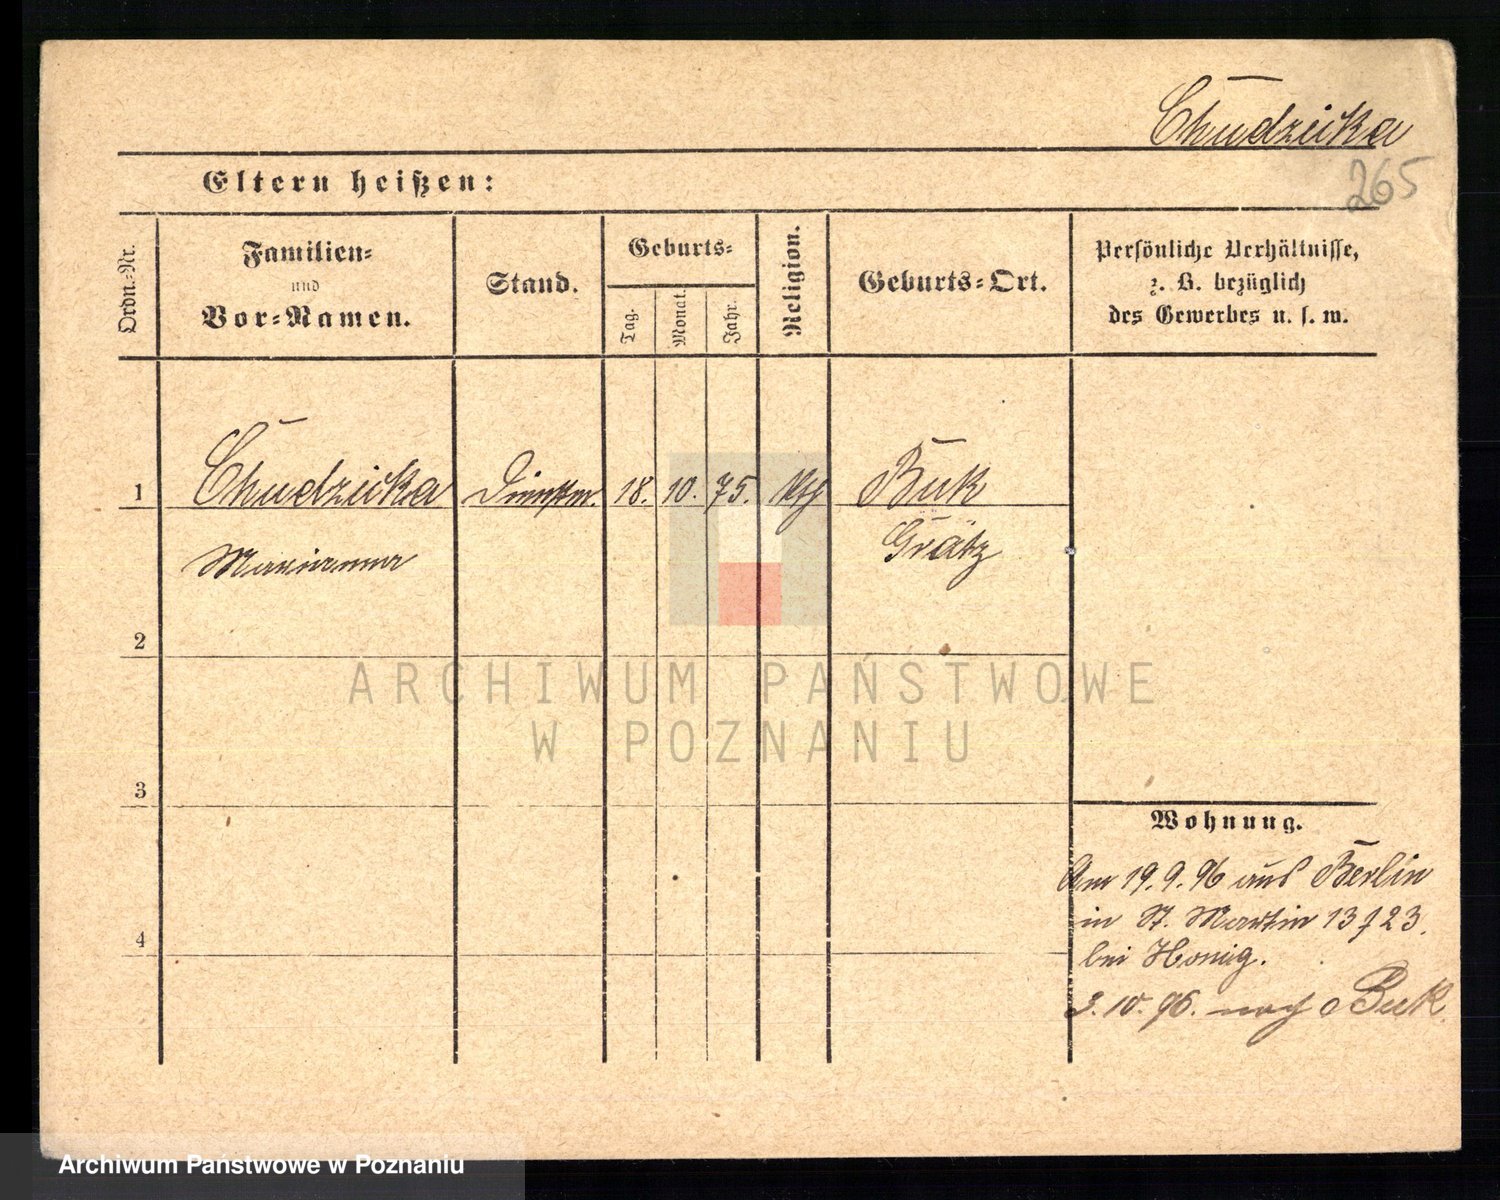 Chudzicka
265
Eltern heißen:
Ordn.-Nr.
Familien-
und
Vor-Namen.
Stand.
Geburts-
Tag.
Monat.
Jahr.
Religion.
Geburts-Ort.
Persönliche Verhältnisse,
z. B. bezüglich
des Gewerbes u. s. w.
1 Chudzicka 18. 10. 75. Buk
Marianna Grätz
2
3
4
ARCHIWUM PAŃSTWOWE
W POZNANIU
Wohnung.
Am 19.9.96 aus Berlin
in St. Martin 13 / 23.
bei Honig.
3.10.96. nach Buk
Archiwum Państwowe w Poznaniu